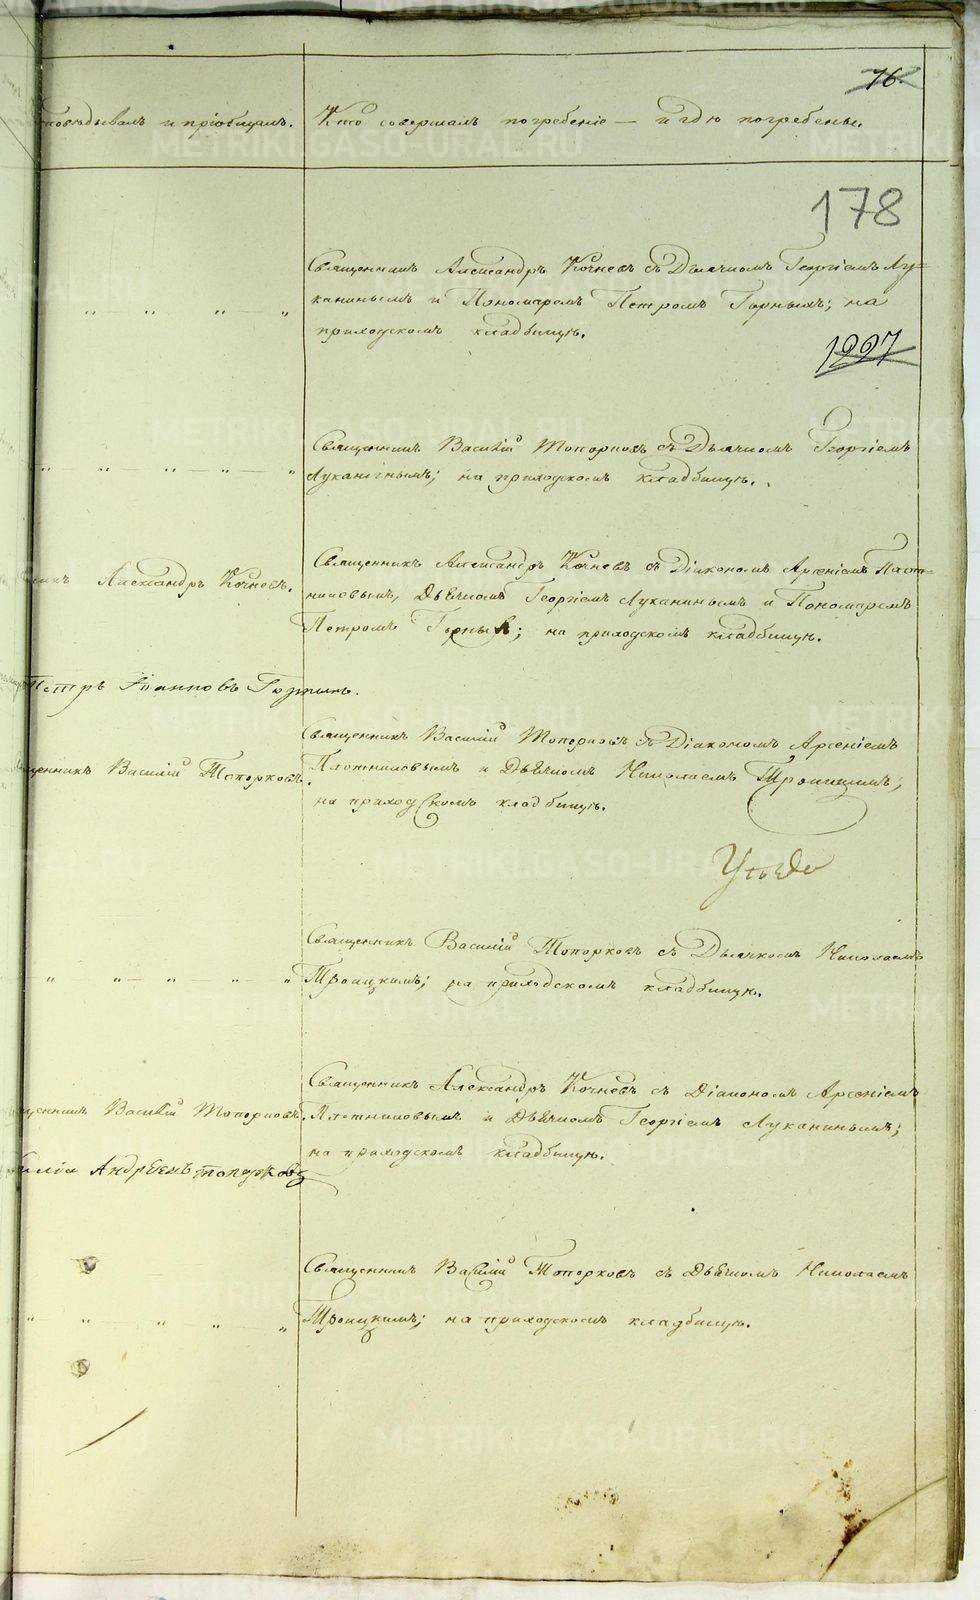 76.
исповѣдывалъ и пріобщалъ.
Кто совершалъ погребеніе — и гдѣ погребены.
178
Священникъ Александръ Кочневъ съ Дьячкомъ Георгіемъ Лу-
канинымъ и Пономаремъ Петромъ Горныхъ; на
приходскомъ кладбищѣ.
1227
Священникъ Василій Топорковъ съ Дьячкомъ Георгіемъ
Луканинымъ; на приходскомъ кладбищѣ.
Александръ Кочневъ.
Священникъ Александръ Кочневъ съ Діакономъ Арсеніемъ Плот-
никовымъ, Дьячкомъ Георгіемъ Луканинымъ и Пономаремъ
Петромъ Горныхъ; на приходскомъ кладбищѣ.
Петръ Іоанновъ Горныхъ.
Священникъ Василій Топорковъ съ Діакономъ Арсеніемъ
щенникъ Василій Топорковъ.
Плотниковымъ и Дьячкомъ Николаемъ Троицкимъ;
на приходскомъ кладбищѣ.
Священникъ Василій Топорковъ съ Дьячкомъ Николаемъ
Троицкимъ; на приходскомъ кладбищѣ.
Священникъ Александръ Кочневъ съ Діакономъ Арсеніемъ
щенникъ Василій Топорковъ.
Плотниковымъ и Дьячкомъ Георгіемъ Луканинымъ;
на приходскомъ кладбищѣ.
силій Андреевъ Топорковъ
Священникъ Василій Топорковъ съ Дьячкомъ Николаемъ
Троицкимъ; на приходскомъ кладбищѣ.
METRIKI.GASO-URAL.RU